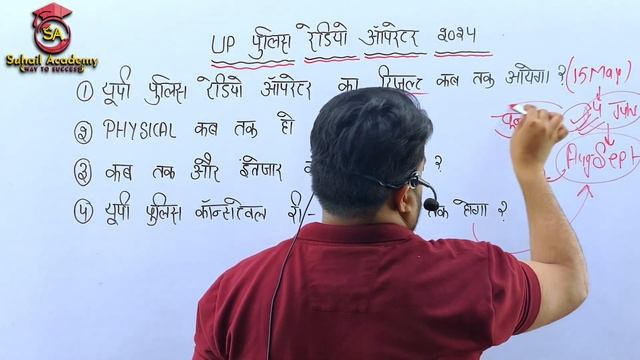 SA
Suhail Academy
WAY TO SUCCESS
UP पुलिस रेडियो ऑपरेटर 2024
① यूपी पुलिस रेडियो ऑपरेटर का रिजल्ट कब तक आयेगा ? (15 May)
4 Jun
② PHYSICAL कब तक हो
Aug Sept
③ कब तक और इंतेजार ?
④ यूपी पुलिस कॉन्सटेबल री- तक होगा ?